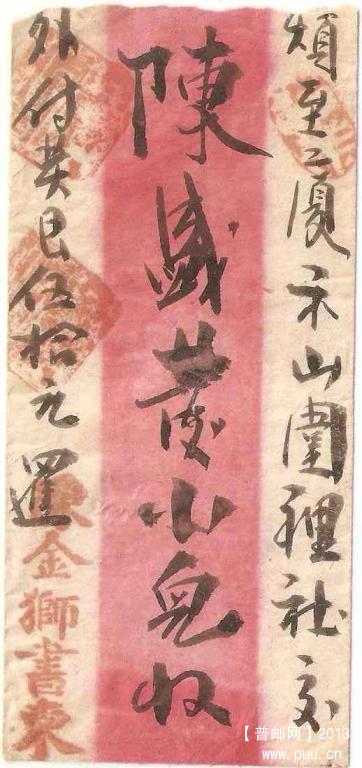 煩至廈禾山圍裡社交
陳盛發小兒收
外付英艮伍拾元
陳金獅書柬
【普邮网】2013
www.puu.cn